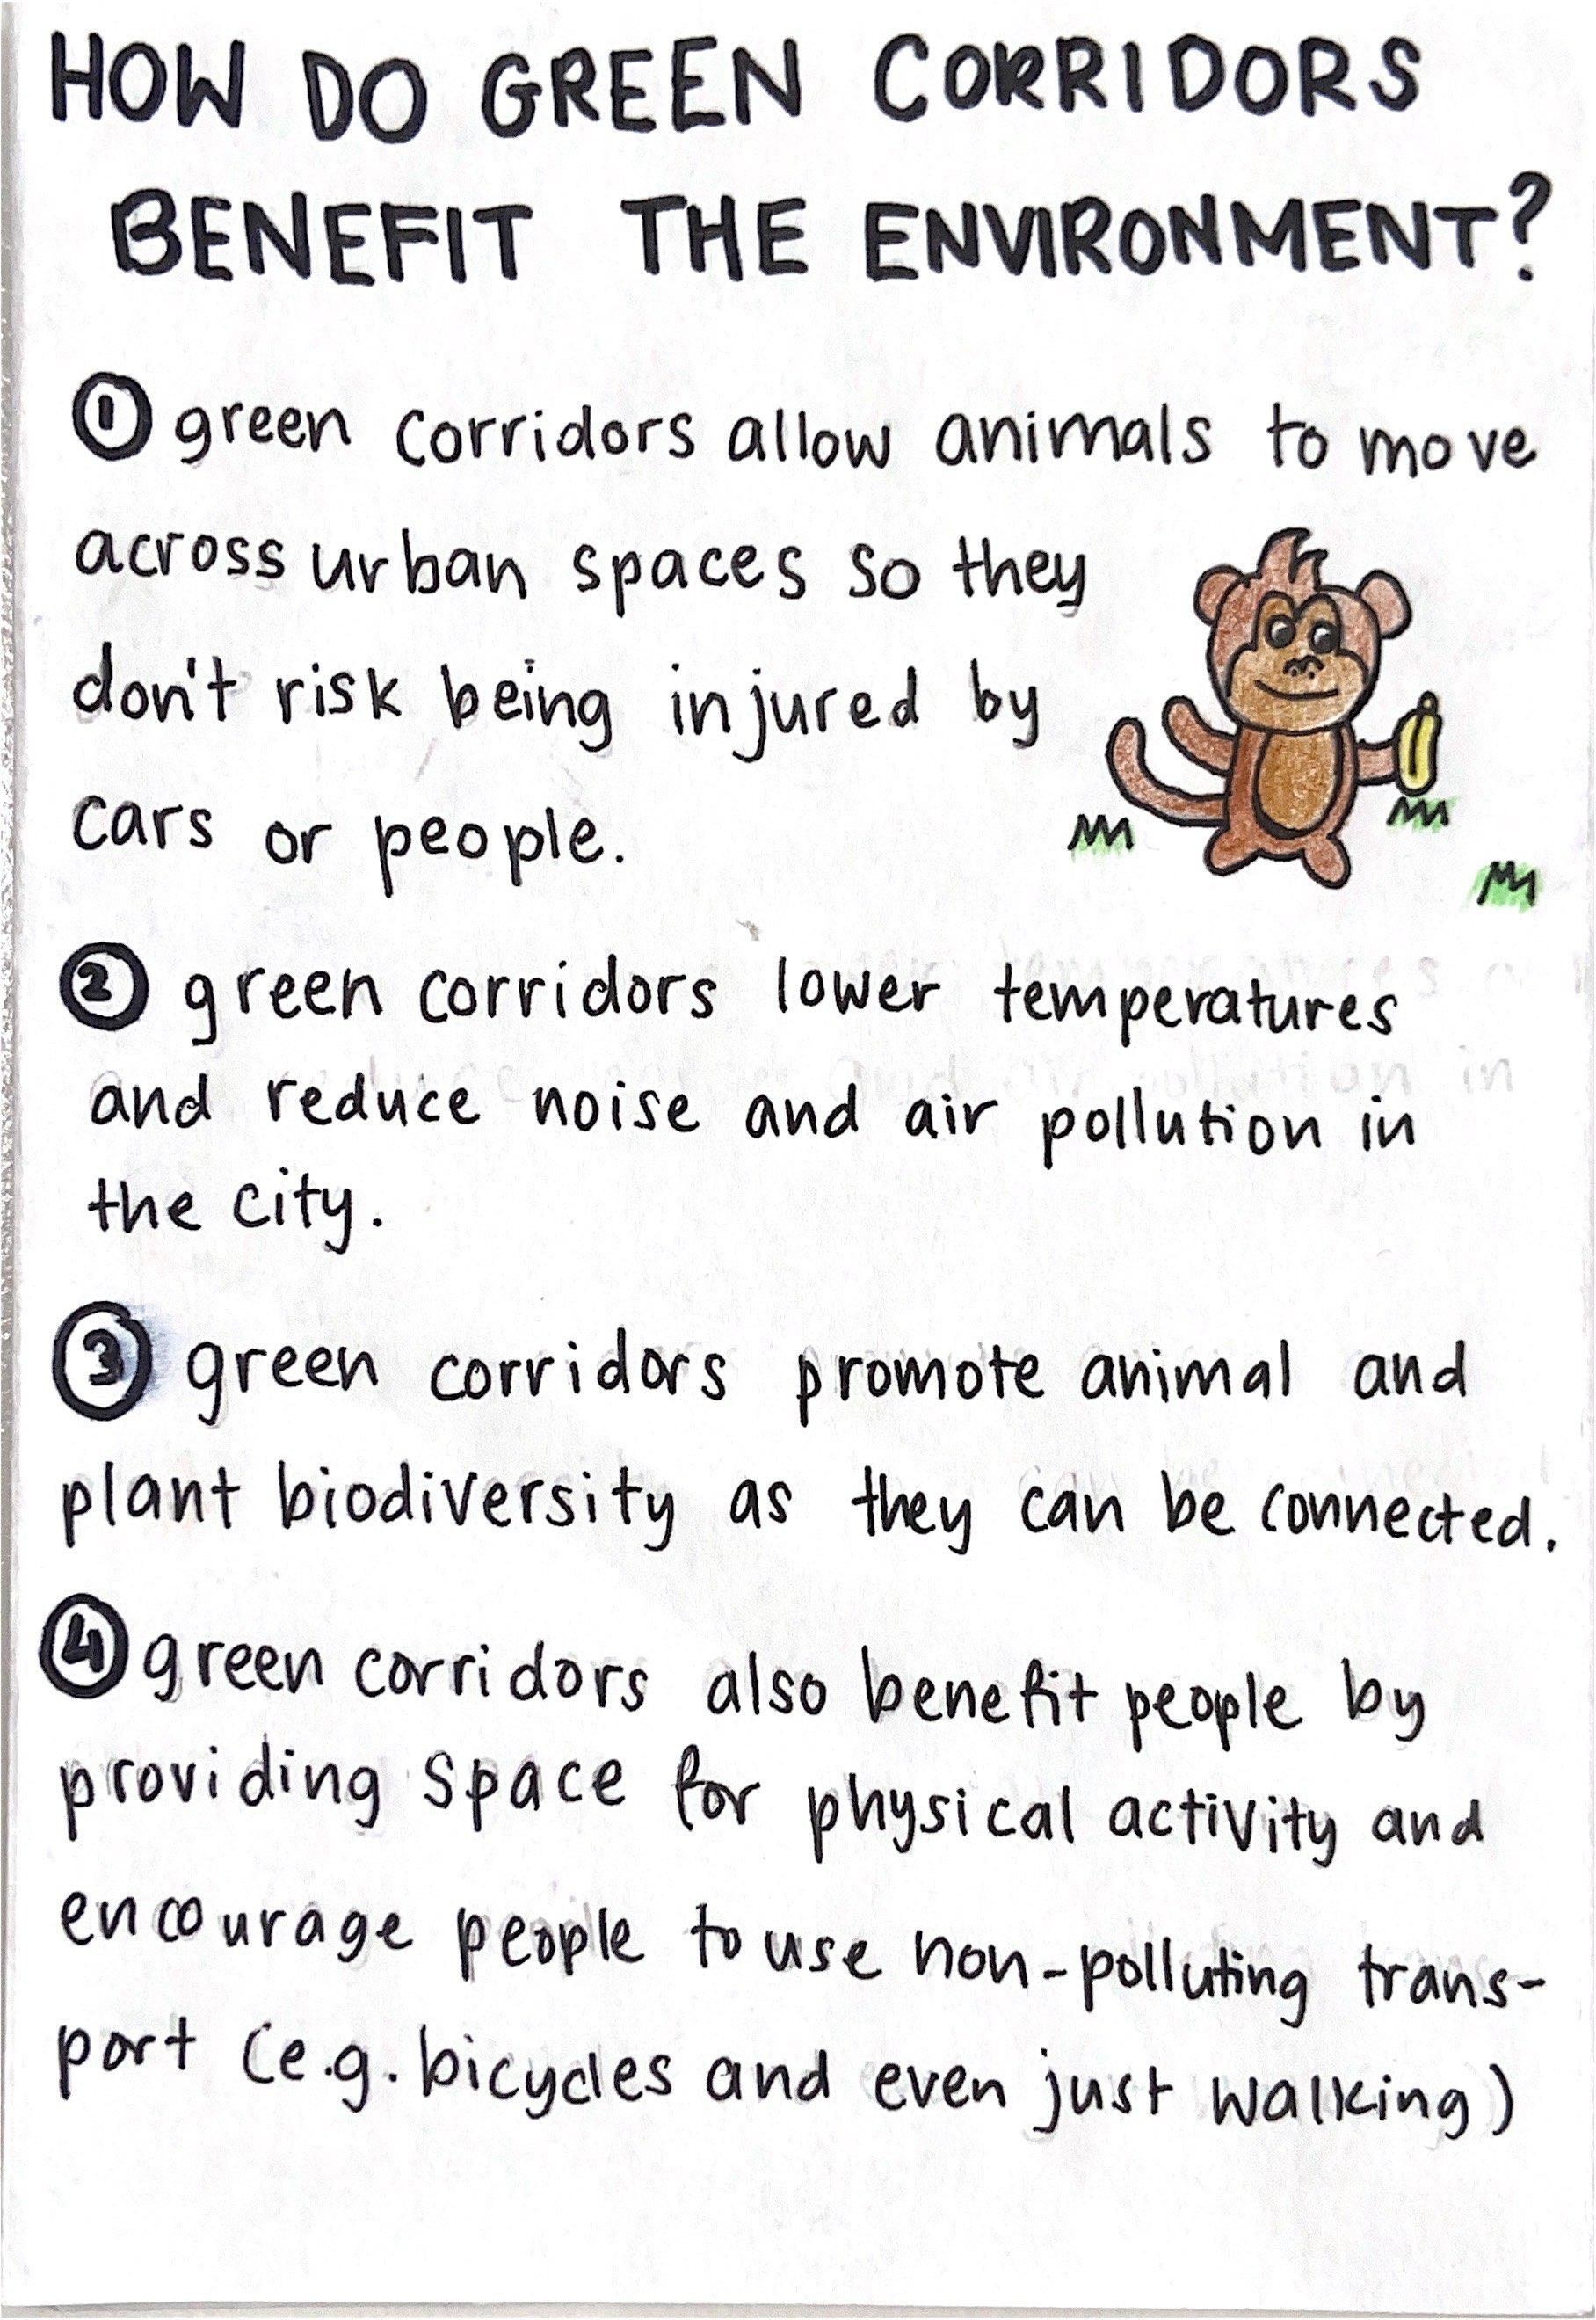 HOW DO GREEN CORRIDORS
BENEFIT THE ENVIRONMENT?
① green corridors allow animals to move
across urban spaces so they
don't risk being injured by
cars or people.
② green corridors lower temperatures
and reduce noise and air pollution in
the city.
③ green corridors promote animal and
plant biodiversity as they can be connected.
④ green corridors also benefit people by
providing space for physical activity and
encourage people to use non-polluting trans-
port (e.g. bicycles and even just walking)